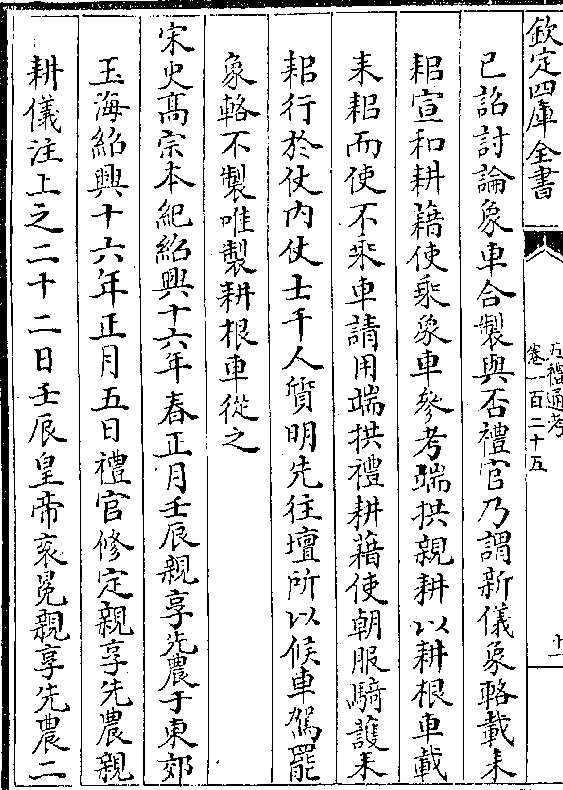 欽定四庫全書
五禮通考
卷一百二十五
十一
已詔討論象車合製與否禮官乃謂新儀象輅載耒
耜宣和耕藉使乘象車參考端拱親耕以耕根車載
耒耜而使不乘車請用端拱禮耕藉使朝服騎護耒
耜行於仗內仗士千人質明先往壇所以候車駕罷
象輅不製唯製耕根車從之
宋史髙宗本紀紹興十六年春正月壬辰親享先農于東郊
玉海紹興十六年正月五日禮官修定親享先農親
耕儀注上之二十二日壬辰皇帝衮冕親享先農二